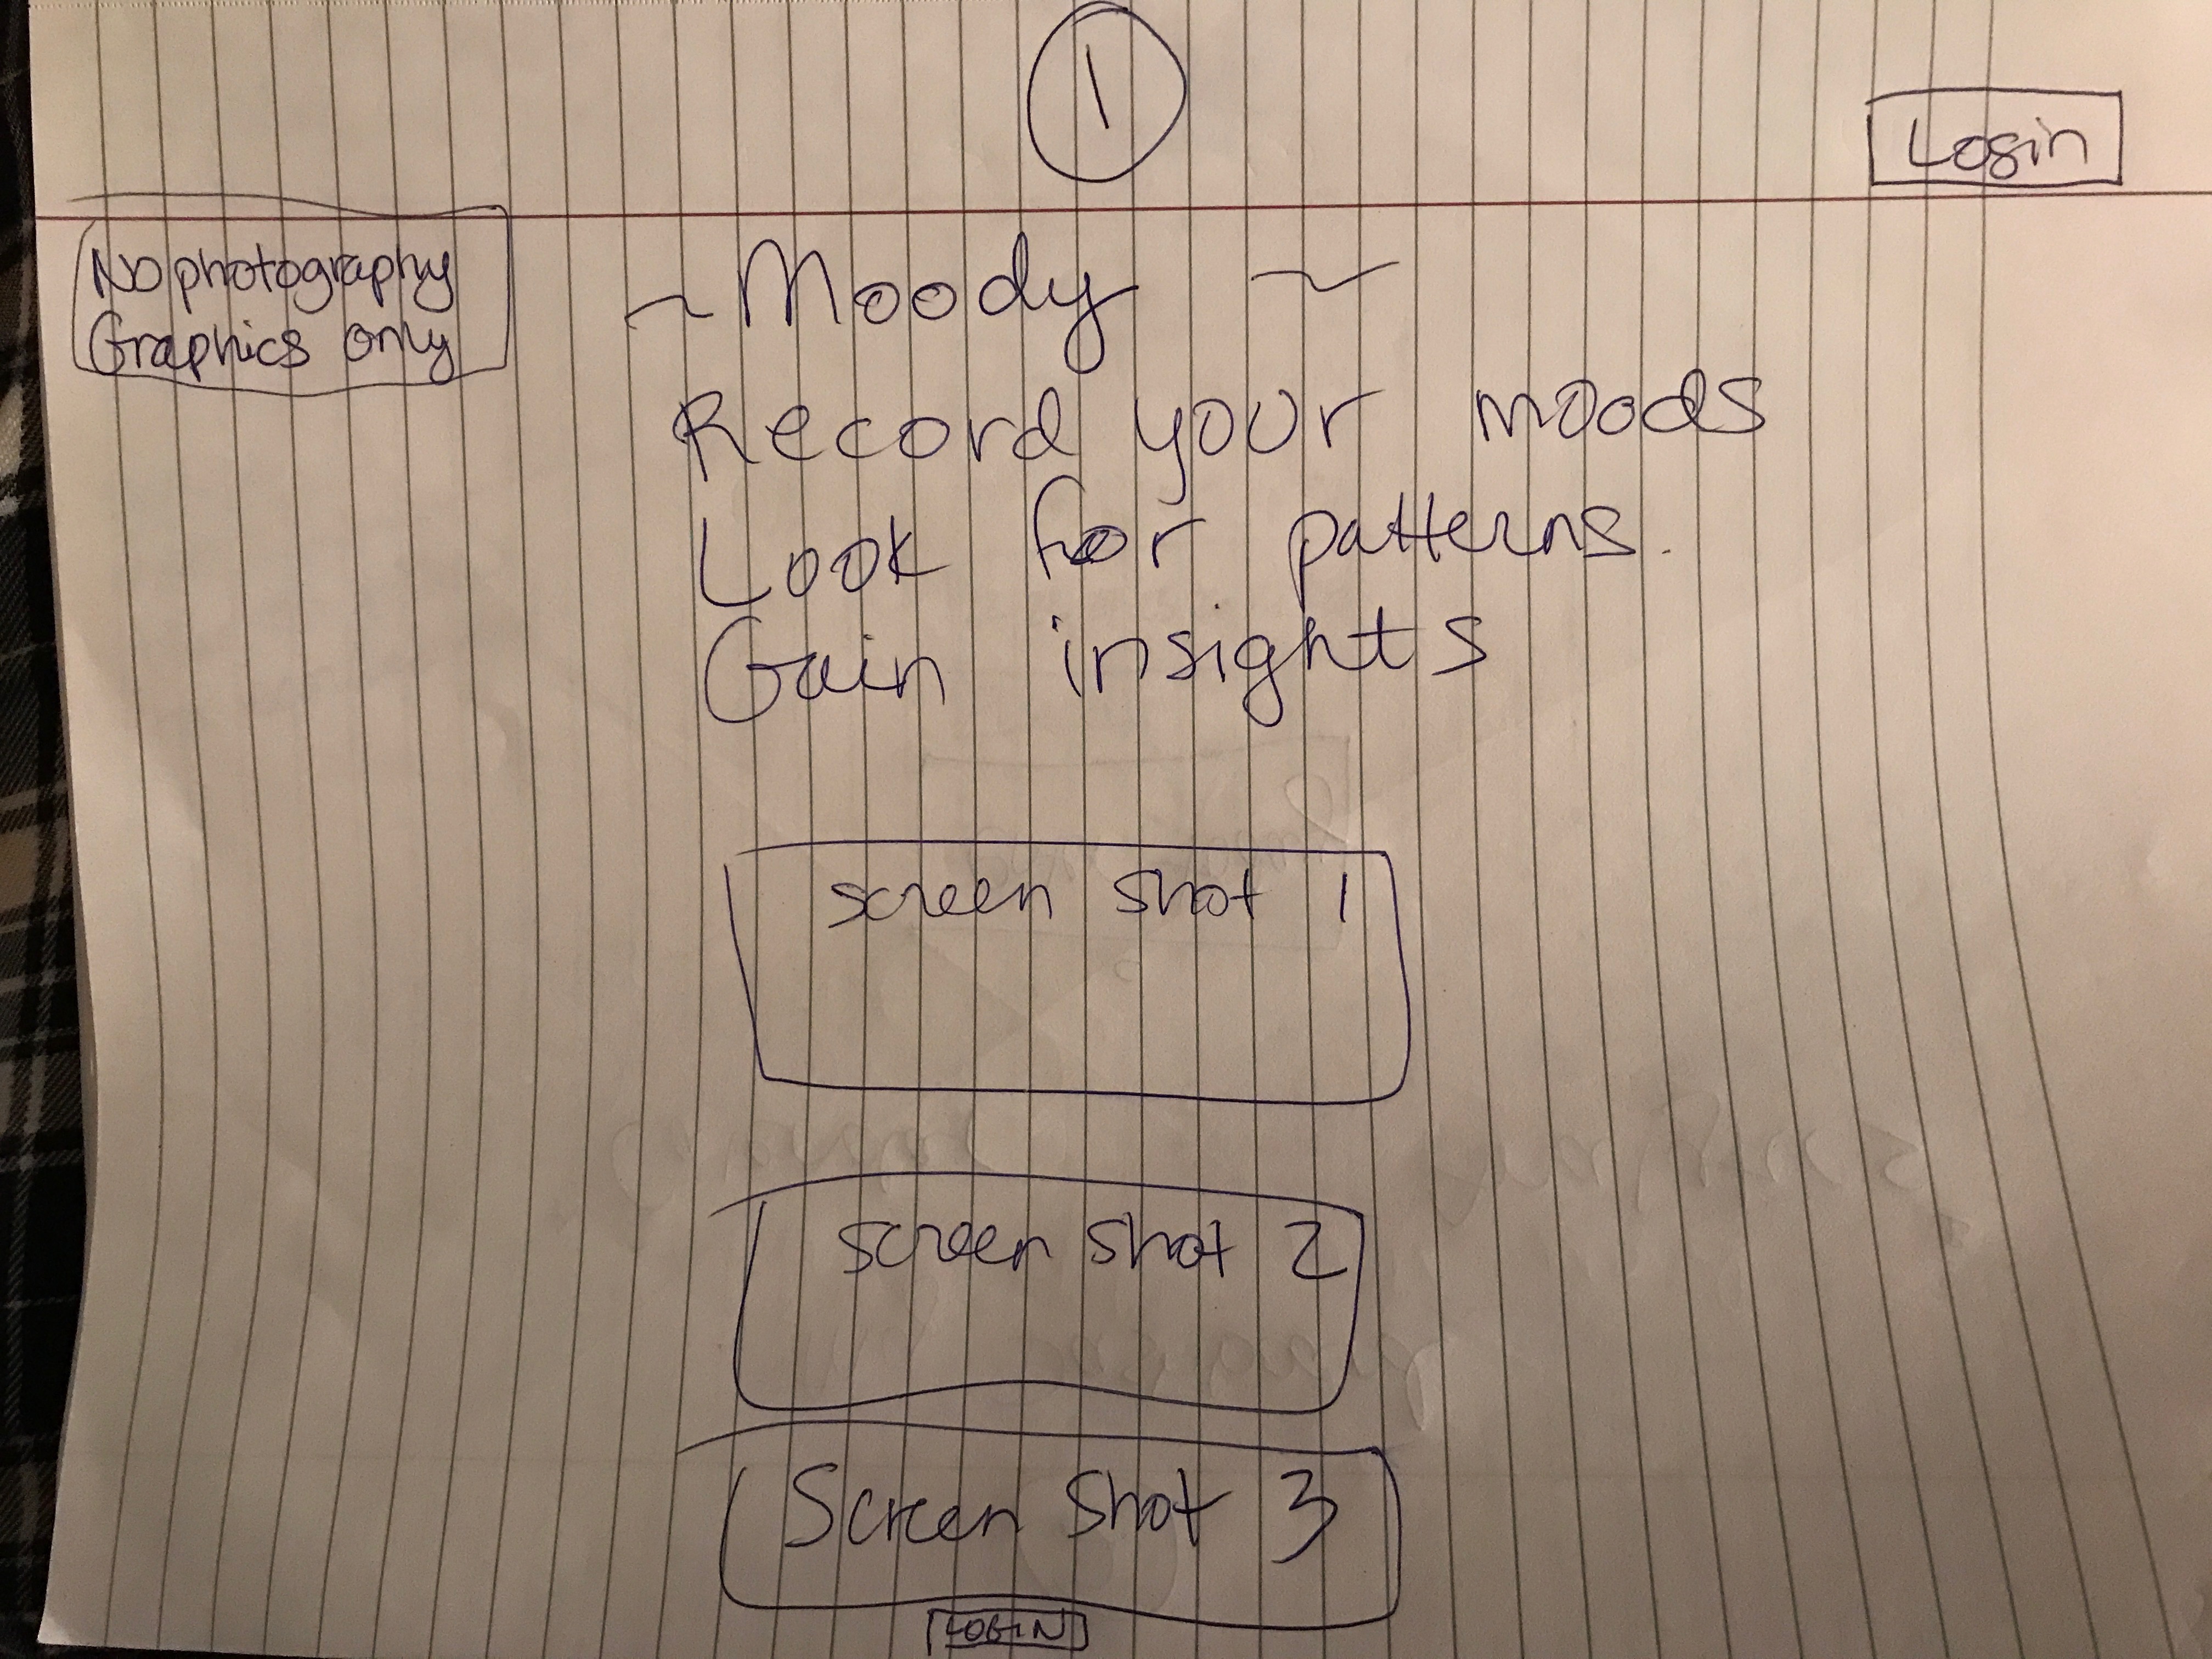 1
Login
No photography
Graphics only
~ Moody ~
Record your moods
Look for patterns.
Gain insights
screen shot 1
screen shot 2
Screen Shot 3
LOGIN